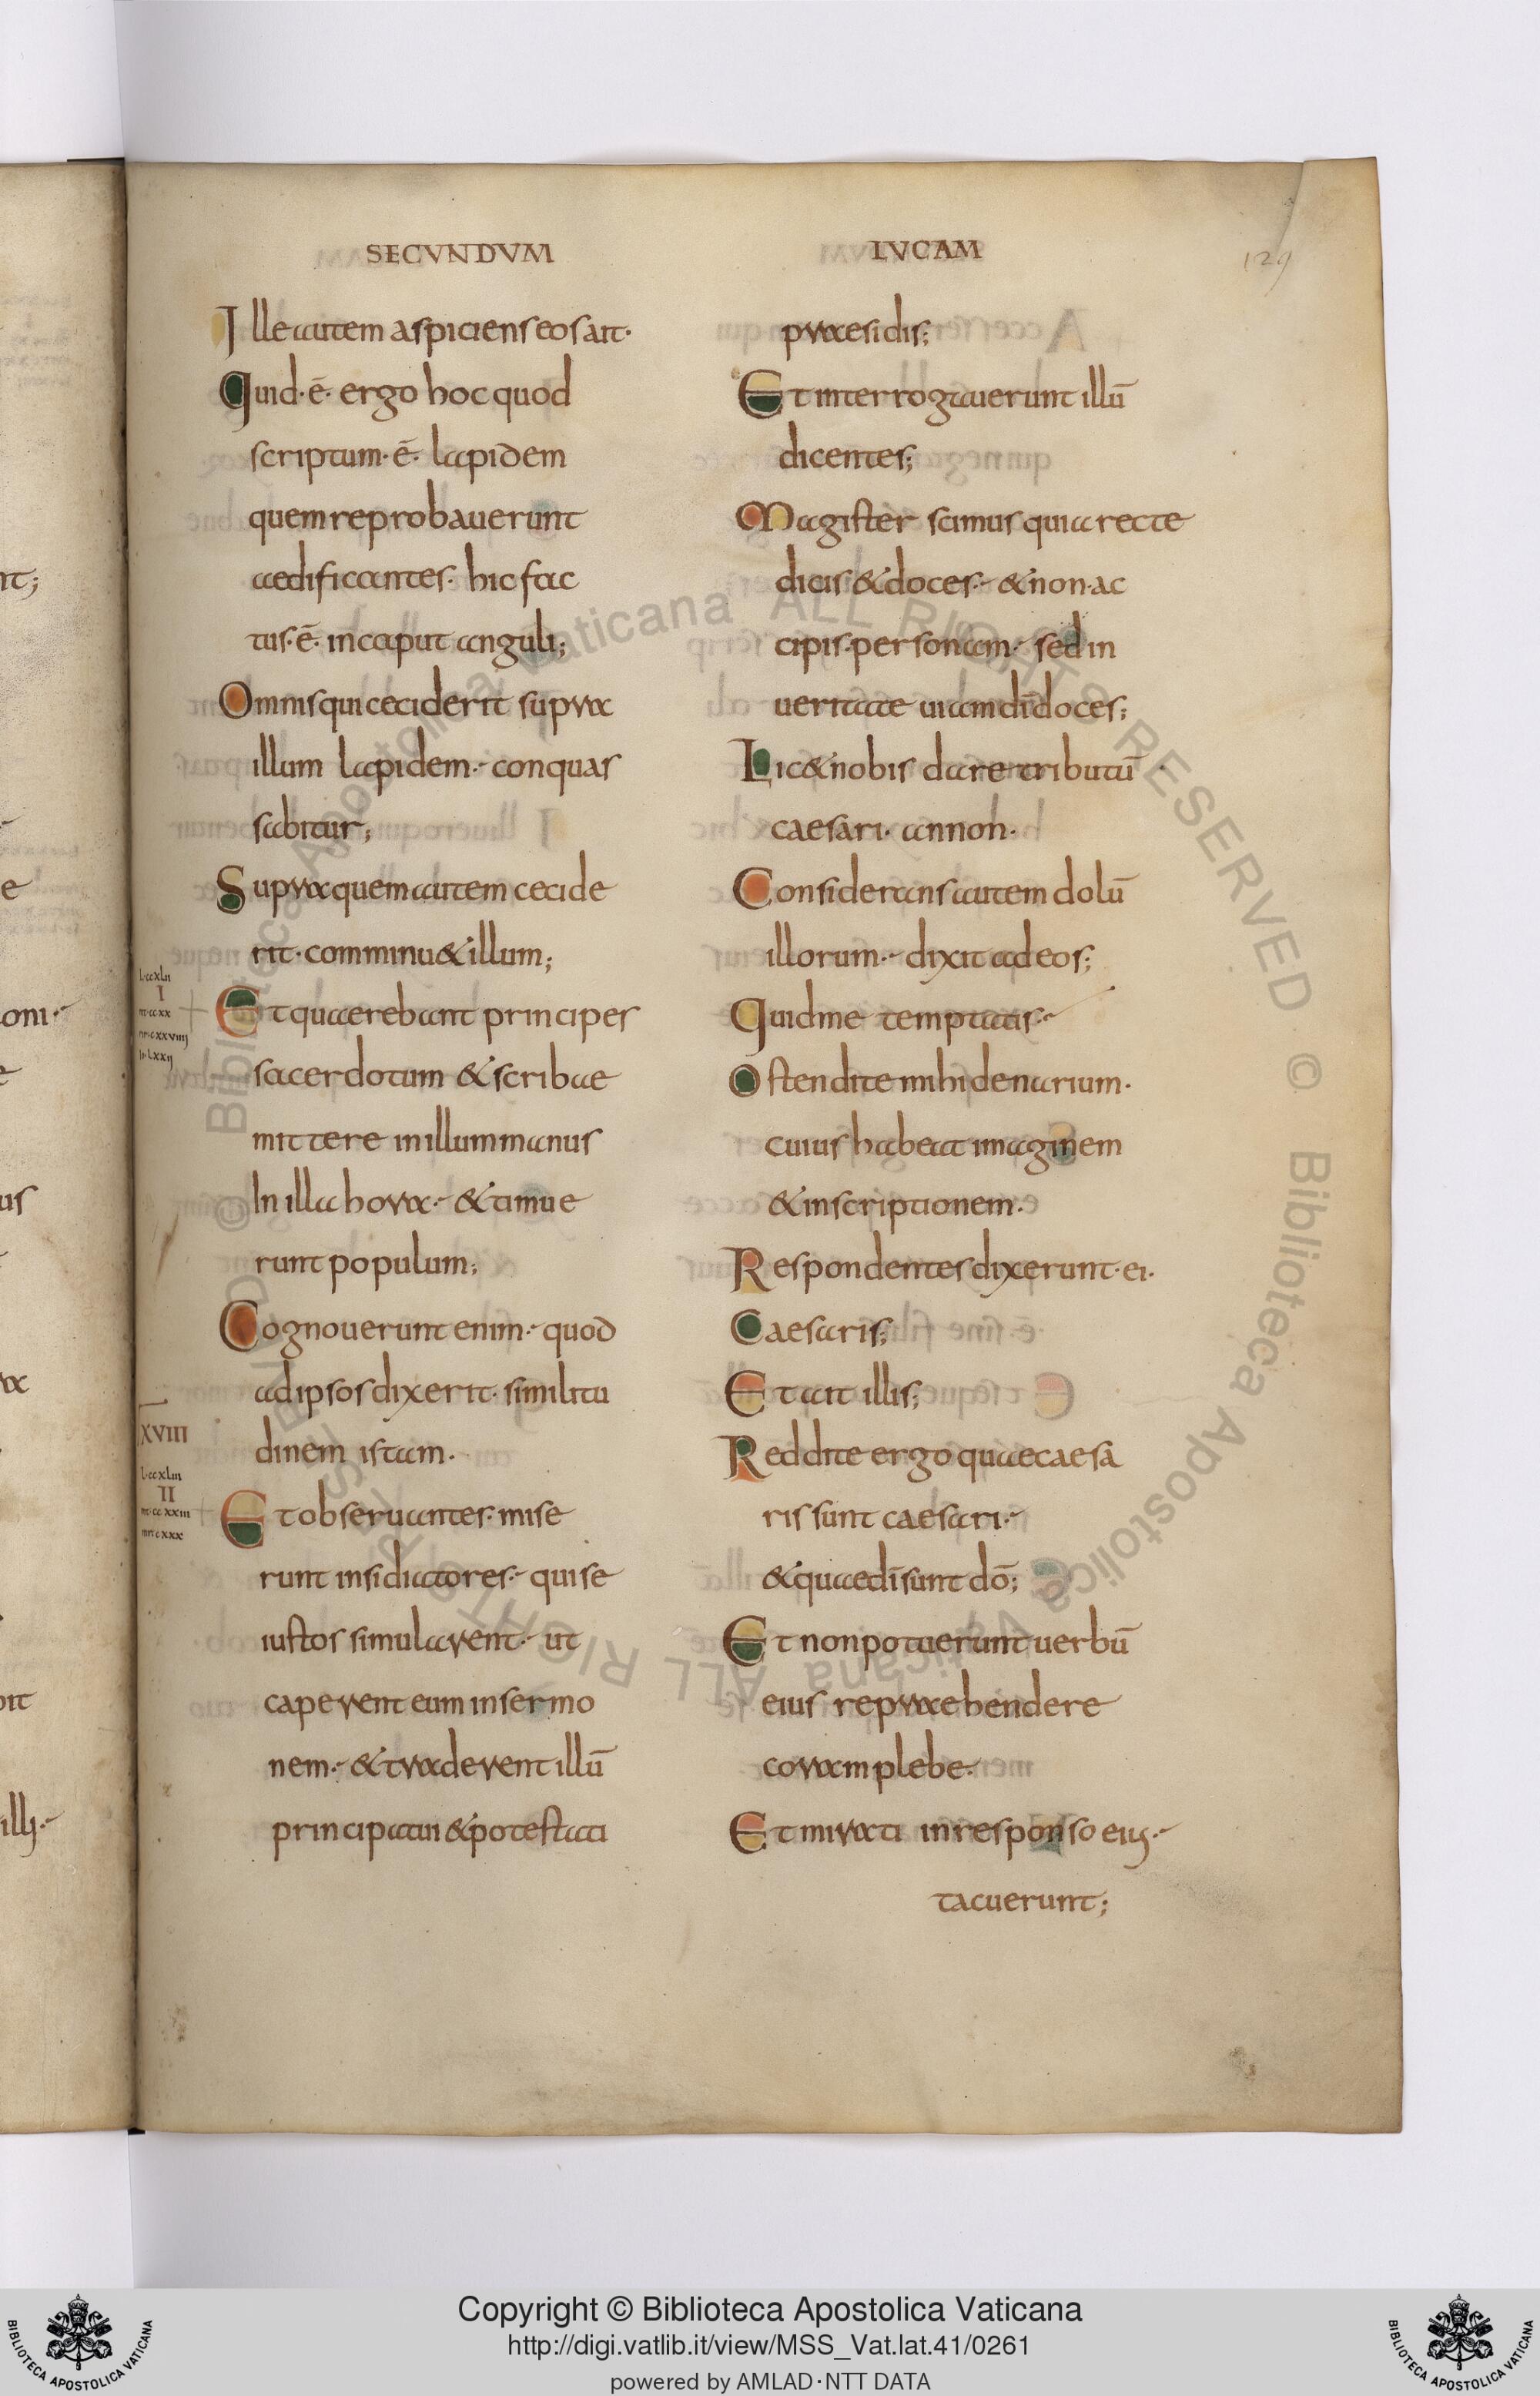 SECVNDVM
Ille autem aspiciens eos ait·
Quid·ē· ergo hoc quod
scriptum·ē· lapidem
quem reprobauerunt
aedificantes· hic fac
tus·ē· in caput anguli;
Omnis qui ceciderit supra
illum lapidem·- conquas
sabitur;
Supra quem autem cecide
rit· comminu& illum;
Et quaerebant principes
sacerdotum & scribae
mittere in illum manus
In illa hora·- & timue
runt populum;
Cognouerunt enim·- quod
ad ipsos dixerit· similitu
dinem istam·
Et obseruantes· mise
runt insidiatores·- qui se
iustos simularent·- ut
caperent eum in sermo
nem·- & traderent illū
principatui & potestati
L·ccxLii
I
m·ccxx
L·ccxLiii
XVIII
II
LVCAM
129
praesidis;
Et interrogauerunt illū
dicentes;
Magister scimus quia recte
dicis & doces·- & non·ac
cipis·personam·- sed in
ueritate uiam dī doces;
Lic& nobis dare tributū
caesari· an non·
Considerans autem dolū
illorum·- dixit ad eos;
Quid me temptatis·-
Ostendite mihi denarium·
cuius habeat imaginem
& inscriptionem·
Respondentes dixerunt·ei·
Caesaris;
Et ait illis;
Reddite ergo quae caesa
ris sunt caesari·-
& quae dī sunt dō;
Et non potuerunt uerbū
eius repraehendere
coram plebe·
Et mirati in responso eius·-
tacuerunt;
Copyright © Biblioteca Apostolica Vaticana
http://digi.vatlib.it/view/MSS_Vat.lat.41/0261
powered by AMLAD·NTT DATA
BIBLIOTECA APOSTOLICA VATICANA
BIBLIOTECA APOSTOLICA VATICANA